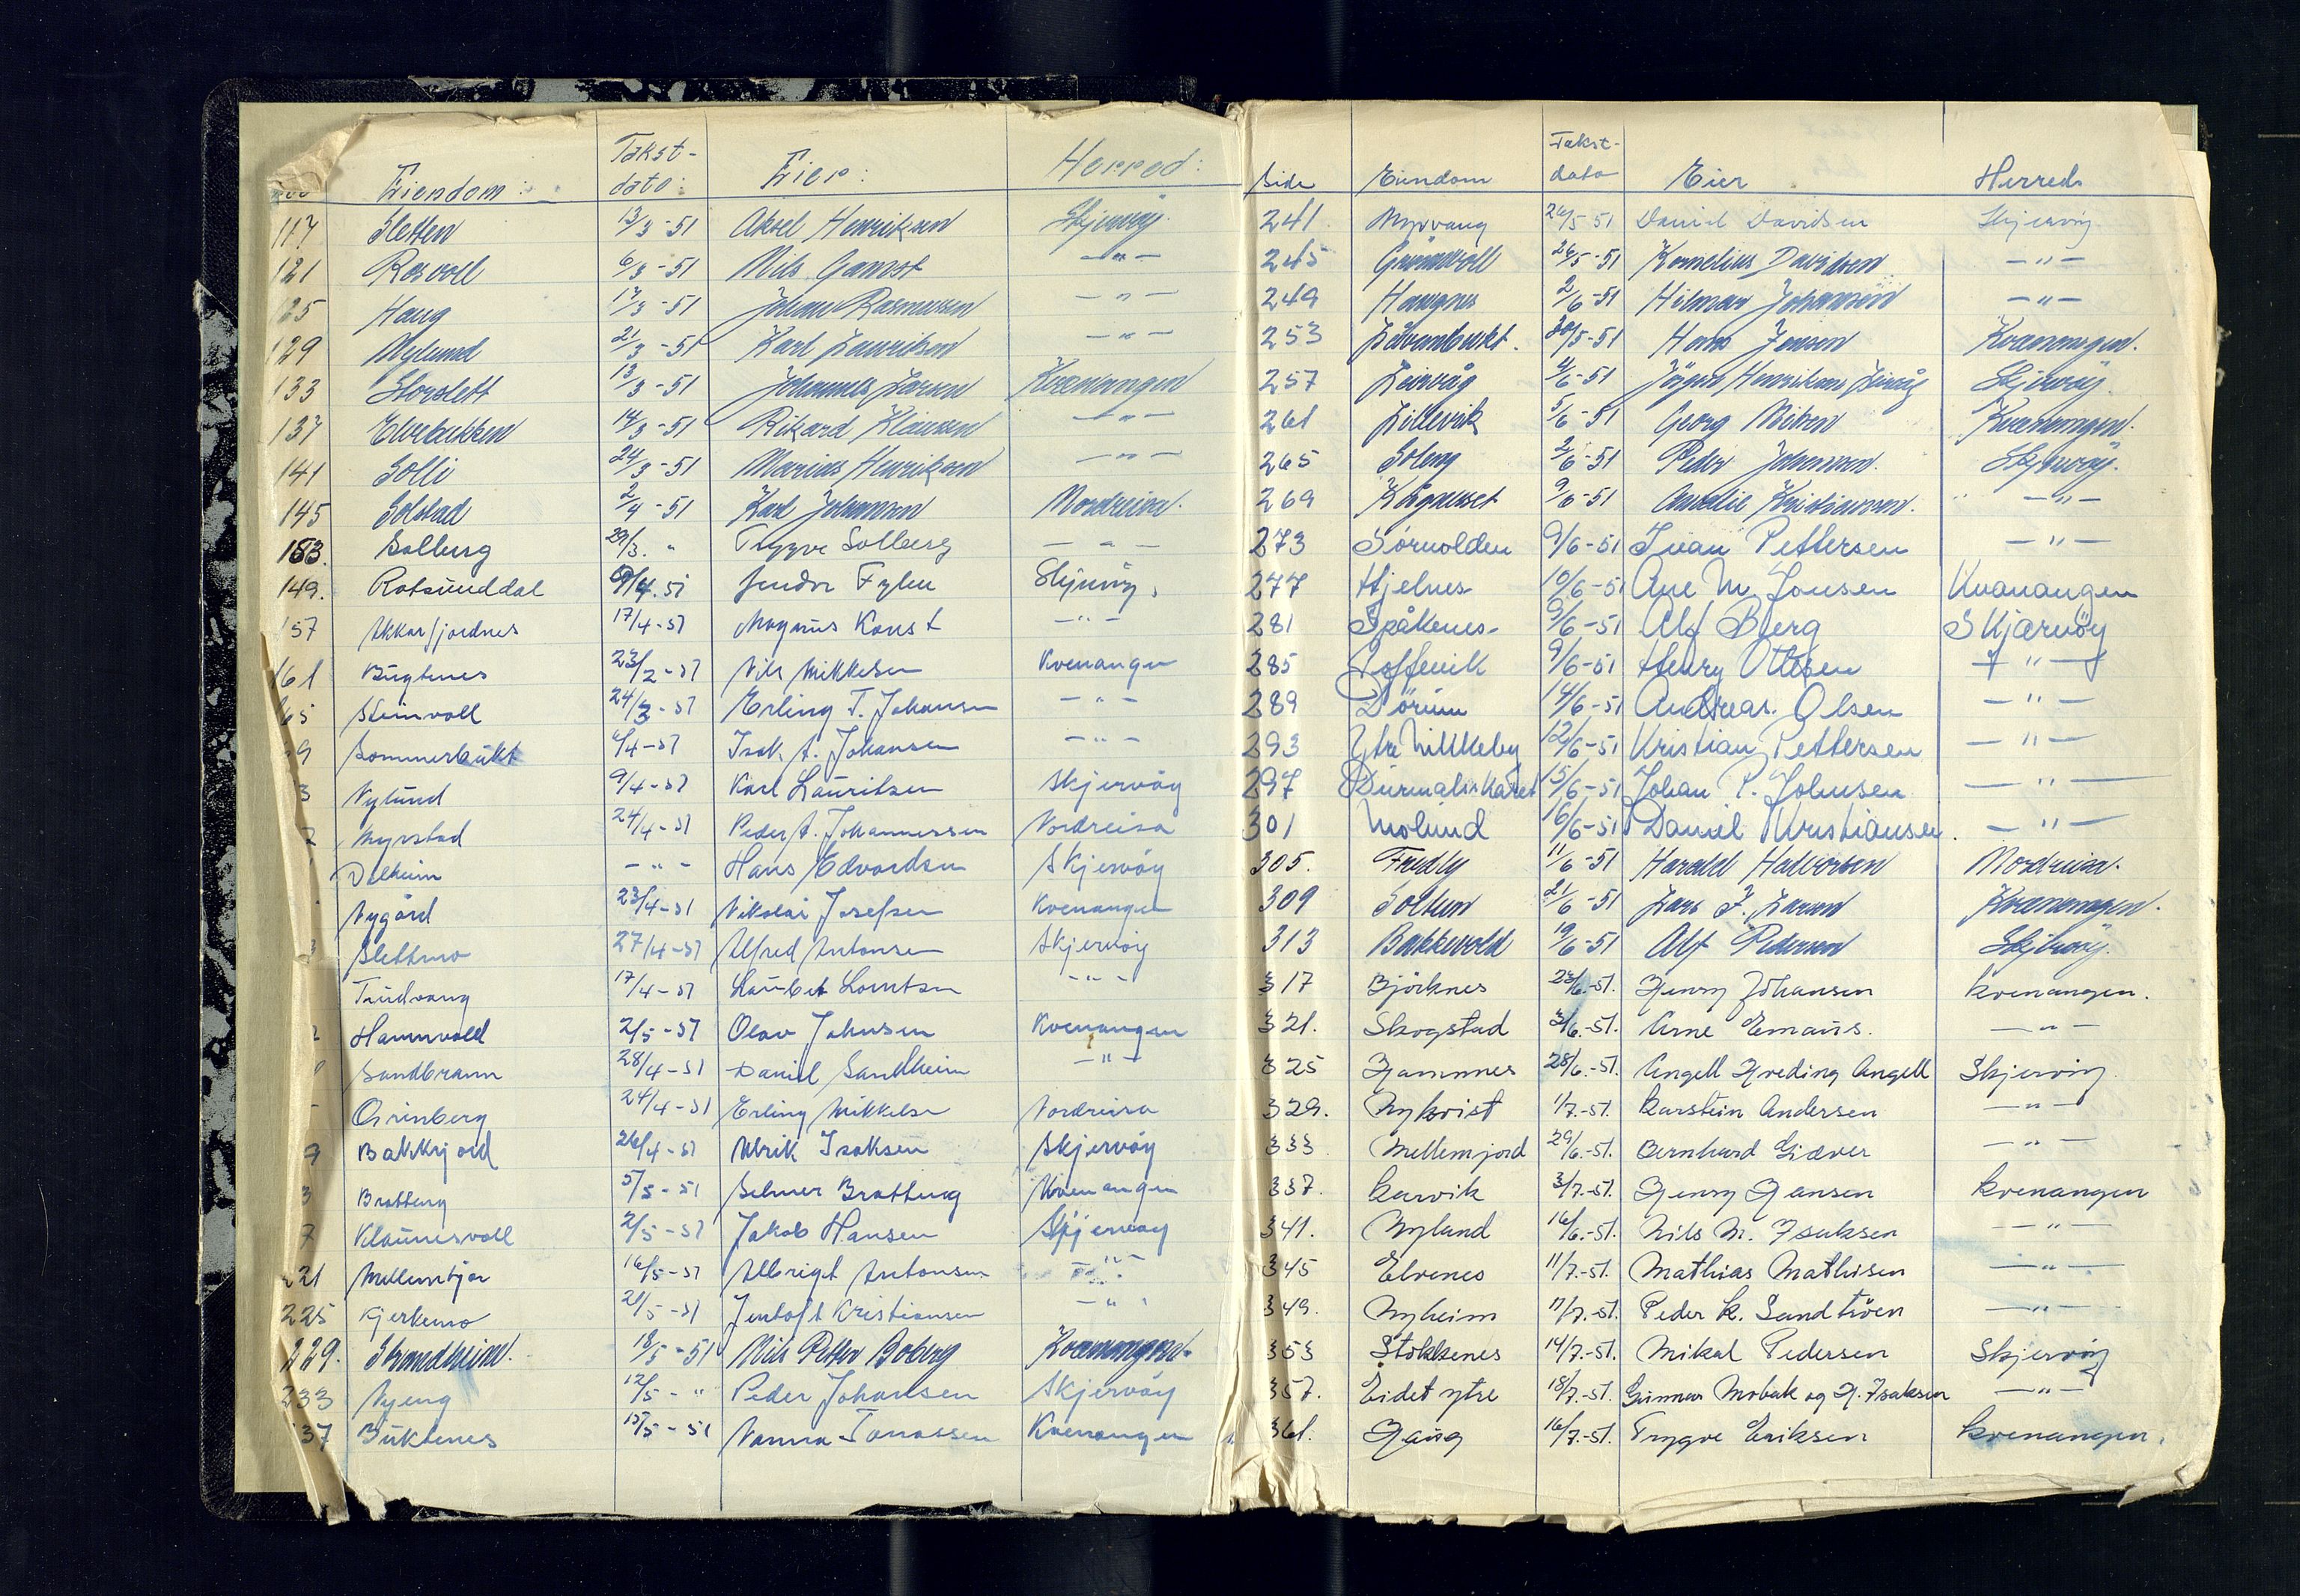 Eiendom: Takst-dato: Eier: Herred:
117 Sletten 13/3-51 Aksel Henriksen Skjervøy.
121 Rosvoll 6/3-51 Nils Gamst -"-
125 Haug 17/3-51 Johan Rasmussen -"-
129 Nylund 21/3-51 Karl Lauritsen -"-
133 Storslett 13/3-51 Johannes Larsen Kvænangen
137 Elvebakken 14/3-51 Rikard Klausen -"-
141 Solli 24/3-51 Marius Henriksen -"-
145 Solstad 2/4-51 Karl Johansen Nordreisa.
183. Solberg 29/3. " Trygve Solberg -"-
149. Rotsunddal /4.51 Fylen Skjervöy.
157 Akkarfjordnes 17/4-51 Magnus Konst -"-
161 Bugtnes 23/2-51 Nils Mikkelsen Kvenangen
65 Steinvoll 24/3-51 Erling T. Johansen -"-
9 Sommerbukt 6/4-51 Isak A. Johansen -"-
3 Nylund 9/4-51 Karl Lauritsen Skjervöy
7 Myrstad 24/4-51 Peder A. Johannessen Nordreisa
Dalheim -"- Hans Edvardsen Skjervöy
Nygård 23/4-51 Nikolai Josefsen Kvenangen
3 Slettmo 27/4-51 Alfred Antonsen Skjervöy
Trudvang 17/4-51 Laubet Lorntsen -"-
Hamnvold 2/5-51 Olav Johnsen Kvenangen
Sandbraun 28/4-51 Daniel Sandheim -"-
Grinberg 24/4-51 Erling Mikkelsen Nordreisa
9 Bakkejord 26/4-51 Ulrik Isaksen Skjervöy
3 Bratberg 5/5-51 Selmer Bratberg Kvenangen
7 Klaunesvoll 2/5-51 Jakob Hansen Skjervöy
221 16/5-51 Albrigt Antonsen -"-
225 Kjerkemo 21/5-51 Jentoft Kristiansen -"-
229. Strandheim. 18/5-51 Nils Petter Boberg Kvænangen.
233 Nyeng 12/5-" Peder Johansen Skjervöy
37 Buktenes 15/5-51 Nanna Tomassen Kvenangen
Side Eiendom Takst-dato Eier Herred
241 Myrvang 26/5-51 Daniel Davidsen Skjervöy
245 Grønvoll 26/5-51 Kornelius Davidsen -"-
249 Haugnes 2/6-51 Hilmar Johansen -"-
253 30/5-51 Hans Jensen Kvænangen.
257 Leirvåg 4/6-51 Jørgen Henriksen Leirvåg Skjervøy.
261 Lillevik 5/6-51 Georg Kvænangen.
265 Soleng 2/6-51 Peder Johansen. Skjervøy.
269 9/6-51 Amelie Kristiansen. -"-
273 Sörvolden 9/6-51 Ivan Pettersen -"-
277 Hjelnes 10/6-51 Ane M. Jonsen Kvænangen
281 Spåkenes 9/6-51 Alf Berg Skjærvöy
285 Toffevik 9/6-51 Henry Ottesen -"-
289 14/6-51 Andreas. Olsen -"-
293 Ytre Mikkeby 12/6-51 Kristian Pettersen -"-
297 Durmalsskaret 15/6-51 Johan P. Johnsen -"-
301 Molund 16/6-51 Daniel Kristiansen. -"-
305. Fredly 11/6-51 Harald Halvorsen Nordreisa.
309 Soltun 21/6-51 Lars J. Larsen Kvænangen.
313 Bakkevold 19/6-51 Alf Pedersen Skjervøy.
317 Björknes 23/6.-51. Henry Johansen Kvenangen.
321. Skogstad 3/6.-51. Arne Emaus. -"-
325 Hamnnes 28/6.-51. Angell Hveding Angell Skjervöy
329. Nykvist 1/7.-51. Karstein Andersen -"-
333 Mellemjord 29/6.-51. Bernhard Giæver -"-
337. Karvik 3/7.-51. Henry Hansen Kvenangen
341. Nyland 16/6.-51. Nils M. Isaksen -"-
345 Elvenes 11/7.-51. Mathias Mathisen -"-
349. Nyheim 11/7.-51. Peder K. Sandtröen -"-
353 Stokkenes 14/7.-51. Mikal Pedersen Skjervöy
357. Eidet ytre 18/7.-51. Gunnar Mobak og H. Isaksen -"-
361. Haug 16/7.-51. Trygve Eriksen Kvenangen.